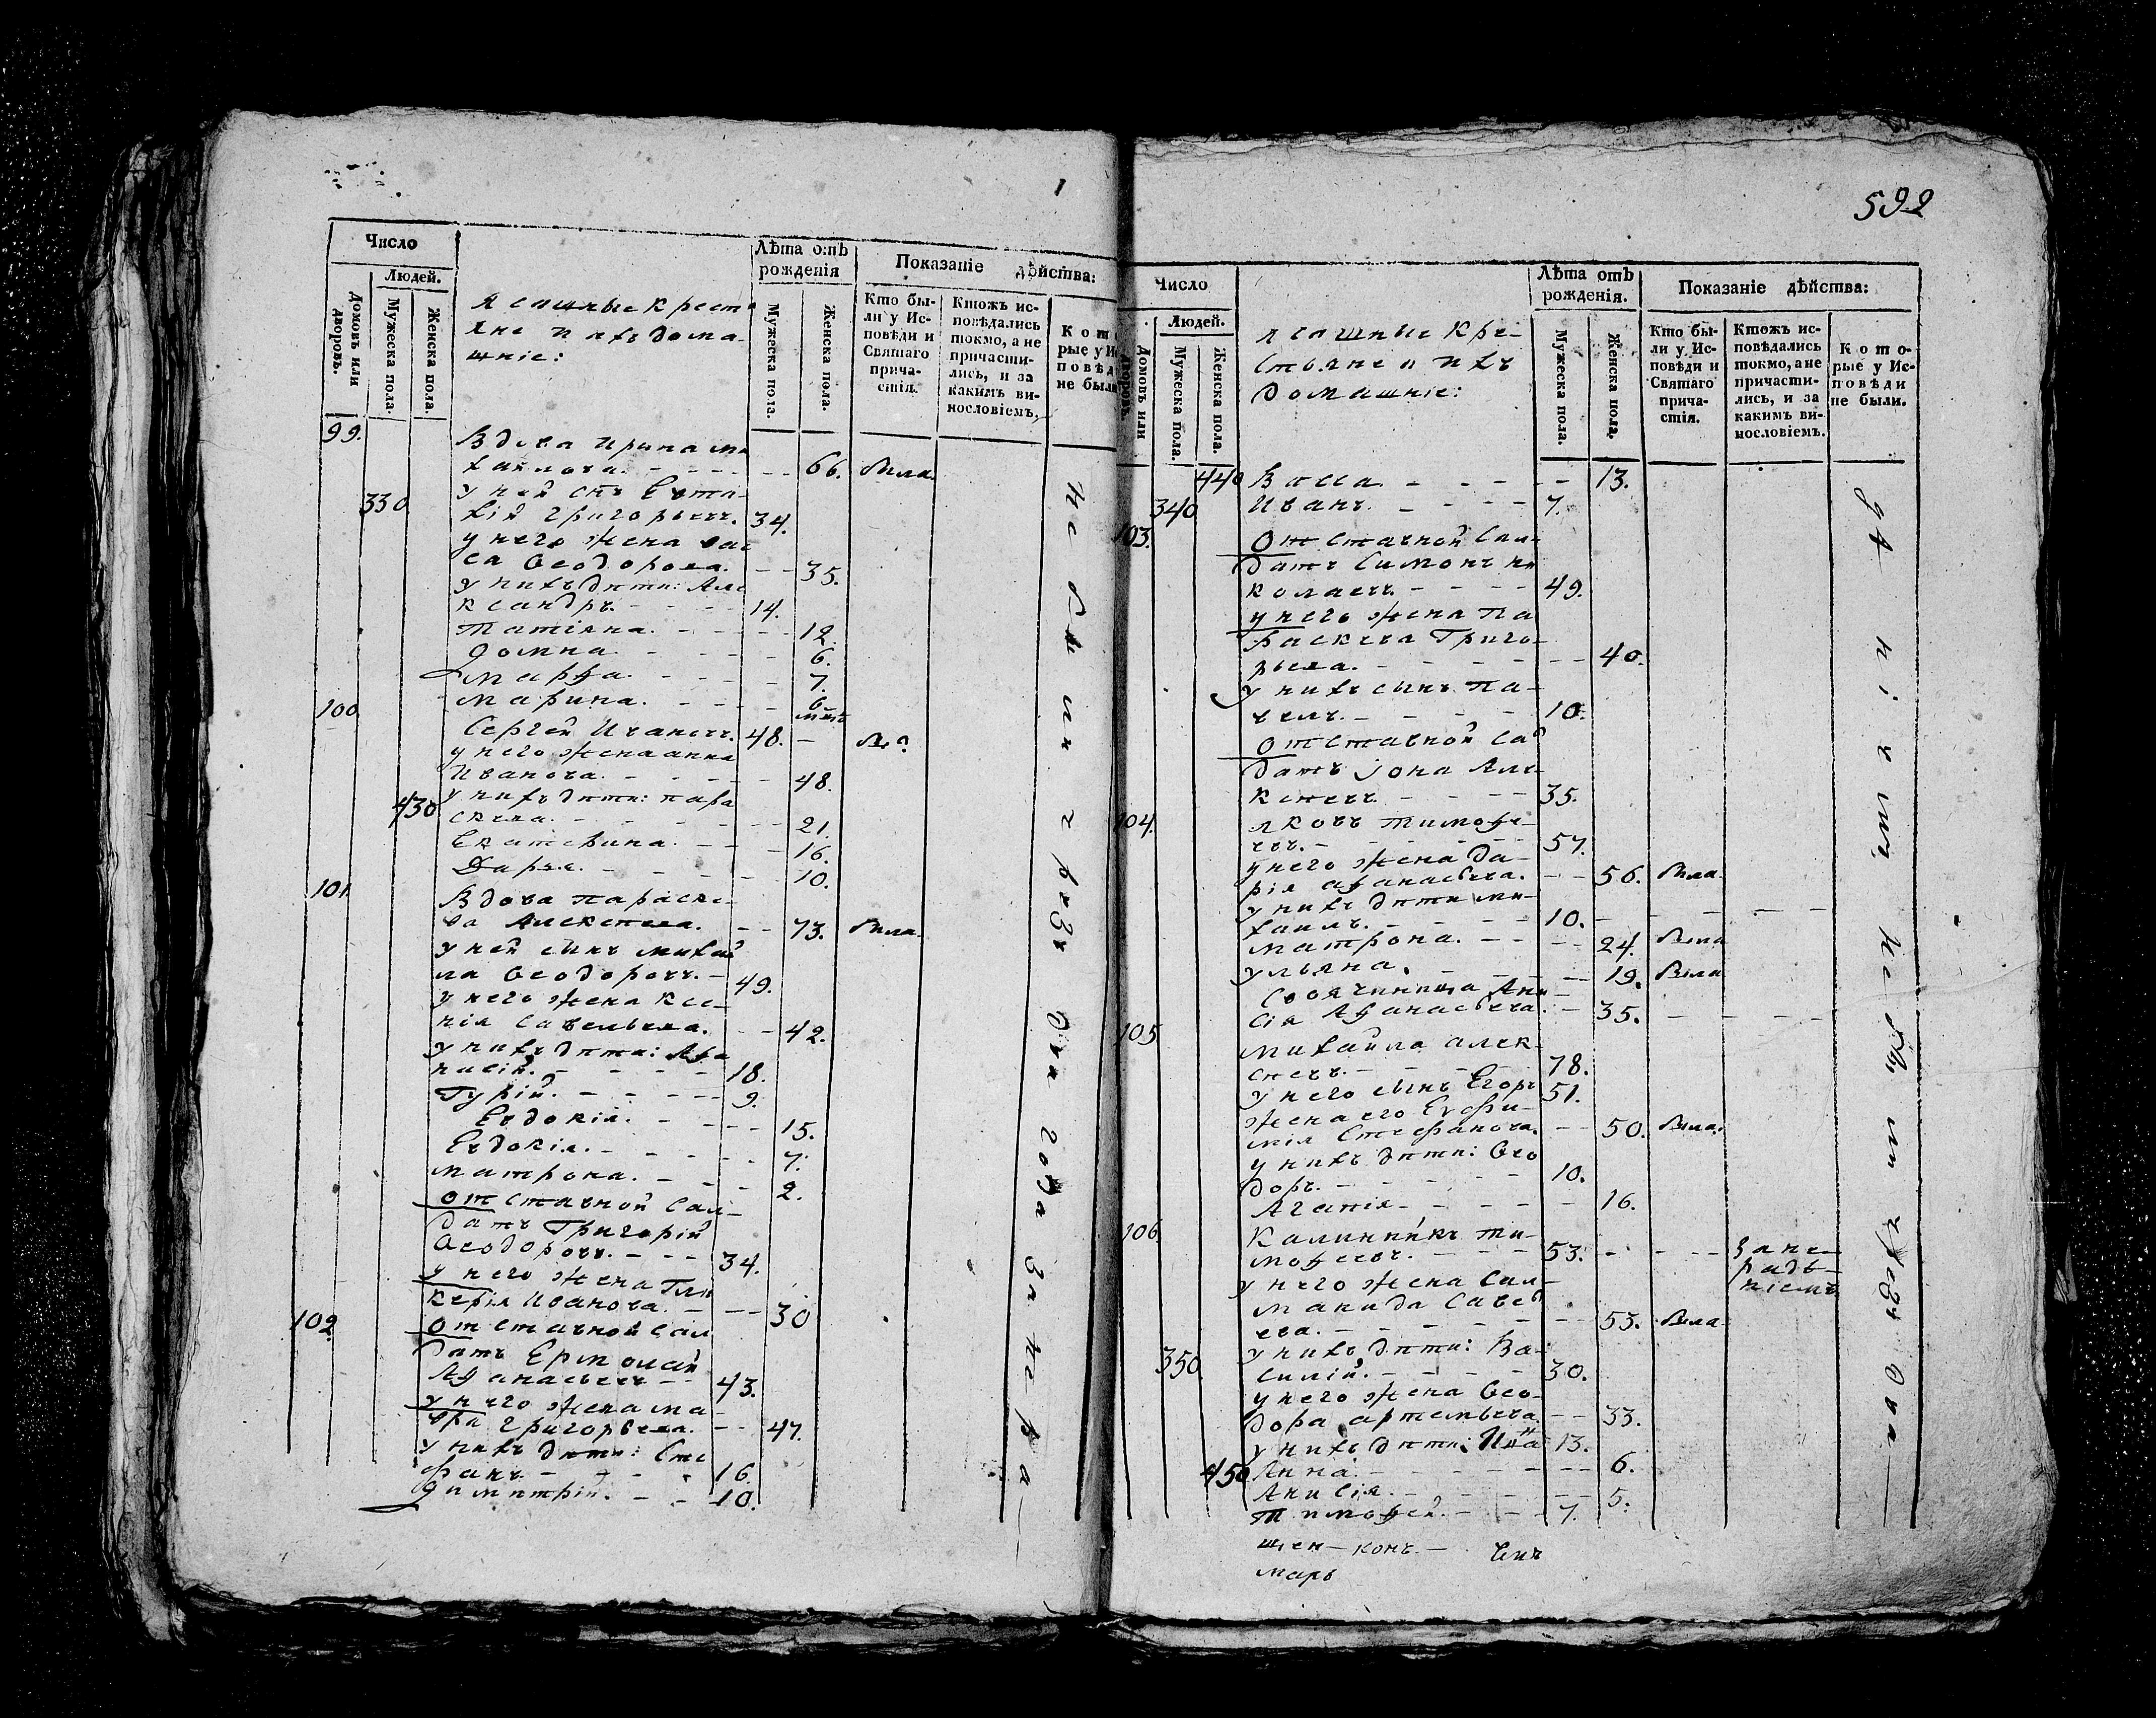 1
Число
Людей.
Домовъ или дворовъ.
Мужеска пола.
Женска пола.
Ясашные крест
яне и ихъ дома-
шніе:
Лѣта отъ
рожденія
Мужеска пола.
Женска пола.
Показаніе дѣйства:
Кто бы-
ли у Ис-
повѣди и
Святаго
прича-
стія.
Ктожъ ис-
повѣдались
токмо, а не
причасти-
лись, и за
какимъ ви-
нословіемъ,
Кото
рые у Ис
повѣд
не были
99.
Вдова Ирина Ми
хаилова. 66. была.
у ней снъ Евта-
330 хій Григорьевъ. 34.
у него жена Вас
са Ѳеодорова. 35.
у нихъ дѣти: Але
ксандръ. 14.
Татіяна. 12.
Домна. 6.
Марѳа. 7.
Марина. 6
мѣ
100
Сергей Ивановъ. 48.
у него жена Анна
Иванова. 48.
у нихъ дѣти: Пара
430 скева. 21.
Екатерина. 16.
Дарья. 10.
101.
Вдова Параске-
ва Алексѣева. 73. была.
у ней сынъ Михай
ла Ѳеодоровъ. 49.
у него жена Ксе-
нія Савельева. 42.
у нихъ дѣти: Аѳа
насій. 18.
Гурій. 9.
Евдокія. 15.
Евдокія. 7.
Матрона. 2.
отставной Сал-
датъ Григорій
Ѳеодоровъ. 34.
у него жена Гли
керія Иванова. 30
102.
отставной Сал
датъ Ермолай
Аѳанасьевъ 43.
у него жена Ма-
вра Григорьева. 47.
у нихъ дѣти: Сте
фанъ 16.
Димитрій. 10.
не были чрезъ два года за нера-
592
Число
Людей.
Домовъ или дворовъ.
Мужеска пола.
Женска пола.
Ясашные кре-
стьяне и ихъ
домашніе:
Лѣта отъ
рожденія.
Мужеска пола.
Женска пола.
Показаніе дѣйства:
Кто бы-
ли у Ис-
повѣди и
Святаго
прича-
стія.
Ктожъ ис-
повѣдались
токмо, а не
причасти-
лись, и за
какимъ ви-
нословіемъ.
Кото-
рые у Ис-
повѣди
не были.
440 Васса. 13.
340 Иванъ. 7.
103. Отставной Сал-
датъ Симонъ Ни
колаевъ. 49.
у него жена Па
раскева Григо-
рьева. 40.
у нихъ сынъ Па-
велъ. 10.
Отставной Сал
датъ Іона Але-
ксѣевъ. 35.
104. Яковъ Тимоѳе-
евъ. 57.
у него жена Да-
рія Аѳанасьева. 56. была.
у нихъ дѣти Ми-
хаилъ. 10.
Матрона. 24. была
Ульяна. 19. была
Своячиница Ани-
сія Аѳанасьева. 35.
105 Михайла Алек-
сѣевъ. 78.
у него сынъ Егоръ 51.
жена его Евфи-
мія Стефанова. 50. была.
у нихъ дѣти: Ѳео
доръ. 10.
Агапія. 16.
106 Калинникъ Ти-
моѳеевъ. 53. за не-
радѣ-
ніемъ
у него жена Сал-
манида Савел
ева. 53. была.
у нихъ дѣти: Ва-
350 силій. 30.
у него жена Ѳео-
дора Артемьева. 33.
у нихъ дѣти: 13.
450 Анна. 6.
Анисія. 5.
Тимоѳей. 7.
щен- конъ.
марь